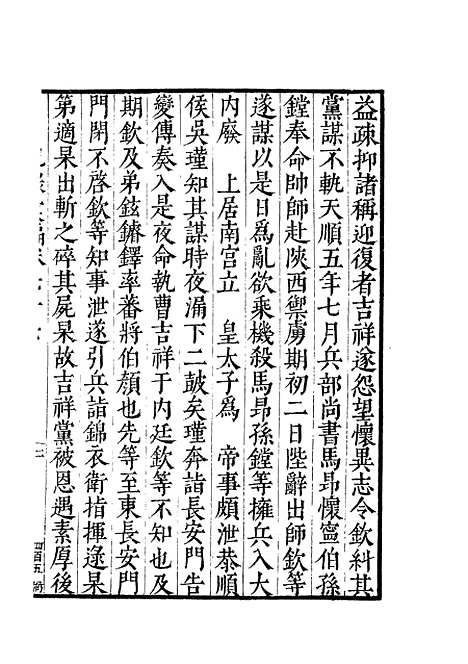 益疎抑諸稱迎復者吉祥遂怨望懷異志令欽糾其
黨謀不軌天順五年七月兵部尚書馬昂懷寧伯孫
鏜奉命帥師赴陝西禦虜期初二日陛辭出師欽等
遂謀以是日為亂欲乘機殺馬昂孫鏜等擁兵入大
內廢 上居南宫立 皇太子為 帝事頗泄恭順
侯吳瑾知其謀時夜漏下二皷矣瑾奔詣長安門告
變傳奏入是夜命執曹吉祥于內廷欽等不知也及
期欽及弟鉉鐪鐸率蕃將伯顏也先等至東長安門
門閉不啓欽等知事泄遂引兵詣錦衣衛指揮逯杲
第適杲出斬之碎其屍杲故吉祥黨被恩遇素厚後
三
四百五